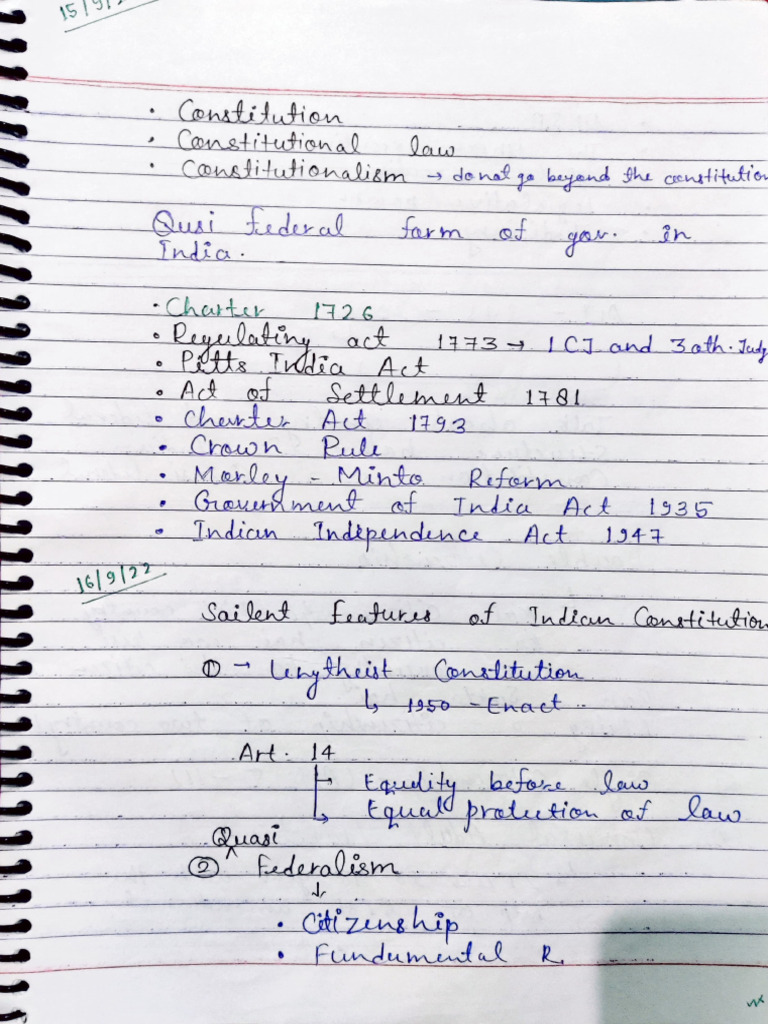 15/9/2
• Constitution
• Constitutional law
• Constitutionalism → do not go beyond the constitution
Qusi federal form of gov. in
India.
• Charter 1726
• Regulating act 1773 → 1 CJ and 3 oth. Judg
• Pitts India Act
• Act of Settlement 1781
• Charter Act 1793
• Crown Rule
• Morley - Minto Reform
• Government of India Act 1935
• Indian Independence Act 1947
16/9/22
Sailent features of Indian Constitution
① → Lengtheist Constitution
↳ 1950 - Enact
Art. 14
→ Equality before law
↳ Equal protection of law
Quasi
② ^ Federalism
↓
• Citizenship
• Fundumental R.